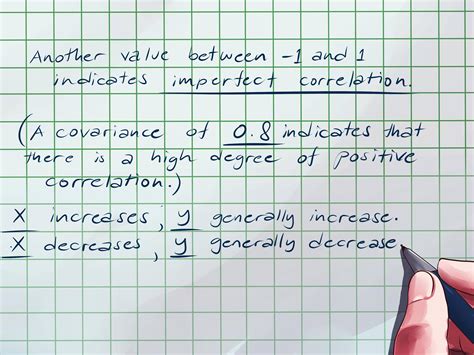 Another value between -1 and 1
indicates imperfect correlation.
(A covariance of 0.8 indicates that
there is a high degree of positive
correlation.)
X increases, y generally increase.
X decreases, y generally decrease